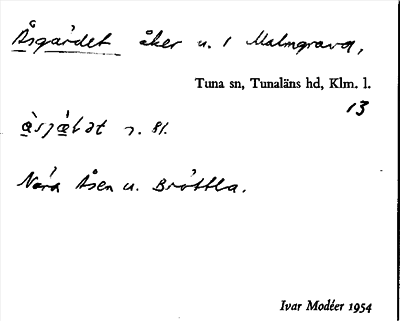 Åsgärdet åker u. 1 Malmgrava,
Tuna sn, Tunaläns hd, Klm. l.
13
s. 81.
Nära Åsen u. Bröttla.
Ivar Modéer 1954